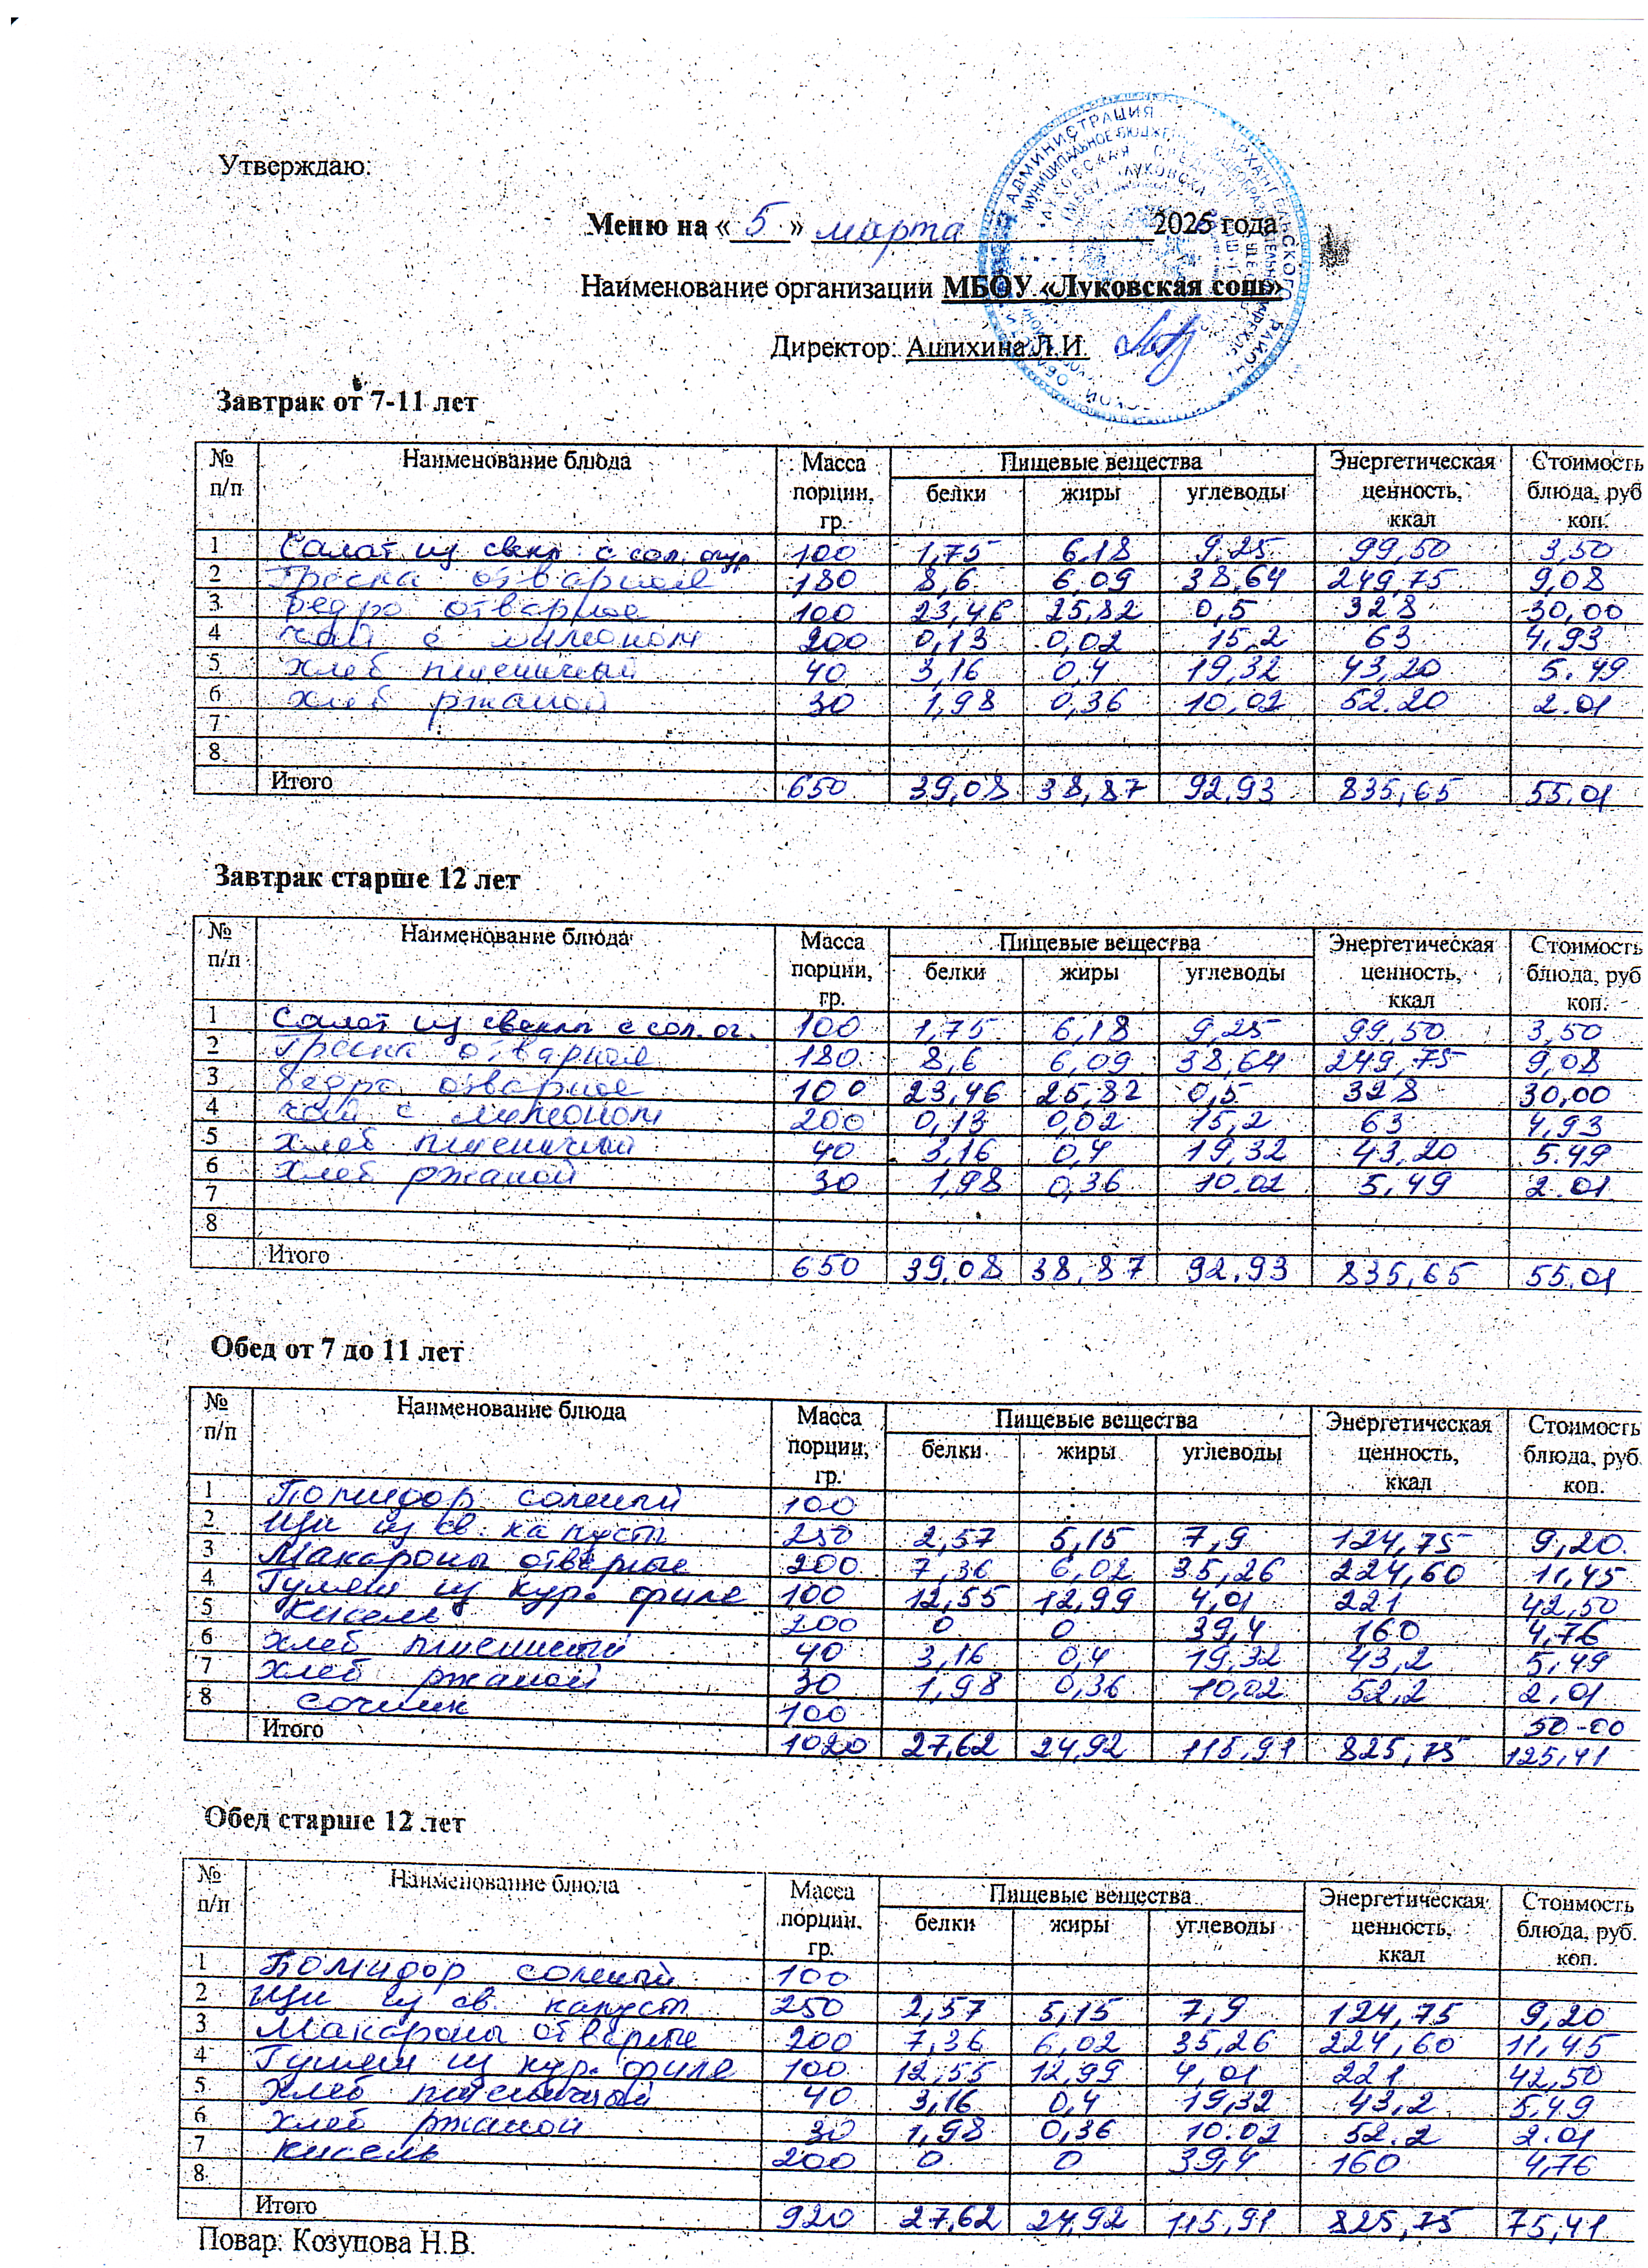 Утверждаю:
Меню на « 5 » марта 2025 года
Наименование организации МБОУ «Луковская сош»
Директор: Ашихина Л.И.
Завтрак от 7-11 лет
№ п/п Наименование блюда Масса порции, гр. Пищевые вещества белки жиры углеводы Энергетическая ценность, ккал Стоимость блюда, руб коп.
1 Салат из свекл с сол. огур 100 1,75 6,18 9,25 99,50 3,50
2 Греска отварная 180 8,6 6,09 38,64 249,75 9,08
3 бедро отварное 100 23,46 25,82 0,5 328 30,00
4 чай с лимоном 200 0,13 0,02 15,2 63 4,93
5 хлеб пшеничный 40 3,16 0,4 19,32 43,20 5.49
6 хлеб ржаной 30 1,98 0,36 10,02 52.20 2.01
7
8
Итого 650 39,08 38,87 92,93 835,65 55.01
Завтрак старше 12 лет
№ п/п Наименование блюда Масса порции, гр. Пищевые вещества белки жиры углеводы Энергетическая ценность, ккал Стоимость блюда, руб коп.
1 Салат из свеклы с сол. ог. 100 1,75 6,18 9,25 99,50 3,50
2 Греска отварная 180 8,6 6,09 38,64 249,75 9,08
3 бедро отварное 100 23,46 25,82 0,5 328 30,00
4 чай с лимоном 200 0,13 0,02 15,2 63 4,93
5 хлеб пшеничный 40 3,16 0,4 19,32 43,20 5.49
6 хлеб ржаной 30 1,98 0,36 10.02 5,49 2.01
7
8
Итого 650 39,08 38,87 92,93 835,65 55.01
Обед от 7 до 11 лет
№ п/п Наименование блюда Масса порции, гр. Пищевые вещества белки жиры углеводы Энергетическая ценность, ккал Стоимость блюда, руб. коп.
1 Помидор соленый 100
2 Щи из св. капусты 250 2,57 5,15 7,9 124,75 9,20.
3 Макароны отварные 200 7,36 6,02 35,26 224,60 11,45
4 Гуляш из кур. филе 100 12,55 12,99 4,01 221 42,50
5 Кисель 200 0 0 39,4 160 4,76
6 хлеб пшеничный 40 3,16 0,4 19,32 43,2 5,49
7 хлеб ржаной 30 1,98 0,36 10,02 52,2 2,01
8 сочник 100 50-00
Итого 1020 27,62 24,92 115,91 825,75 125,41
Обед старше 12 лет
№ п/п Наименование блюда Масса порции, гр. Пищевые вещества белки жиры углеводы Энергетическая ценность, ккал Стоимость блюда, руб. коп.
1 Помидор соленый 100
2 Щи из св. капусты 250 2,57 5,15 7,9 124,75 9,20
3 Макароны отварные 200 7,36 6,02 35,26 224,60 11,45
4 Гуляш из кур. филе 100 12,55 12,99 4,01 221 42,50
5 Хлеб пшеничный 40 3,16 0,4 19,32 43,2 5,49
6 хлеб ржаной 30 1,98 0,36 10.02 52.2 2.01
7 кисель 200 0 0 39,4 160 4,76
8
Итого 920 27,62 24,92 115,91 825,75 75,41
Повар: Козупова Н.В.